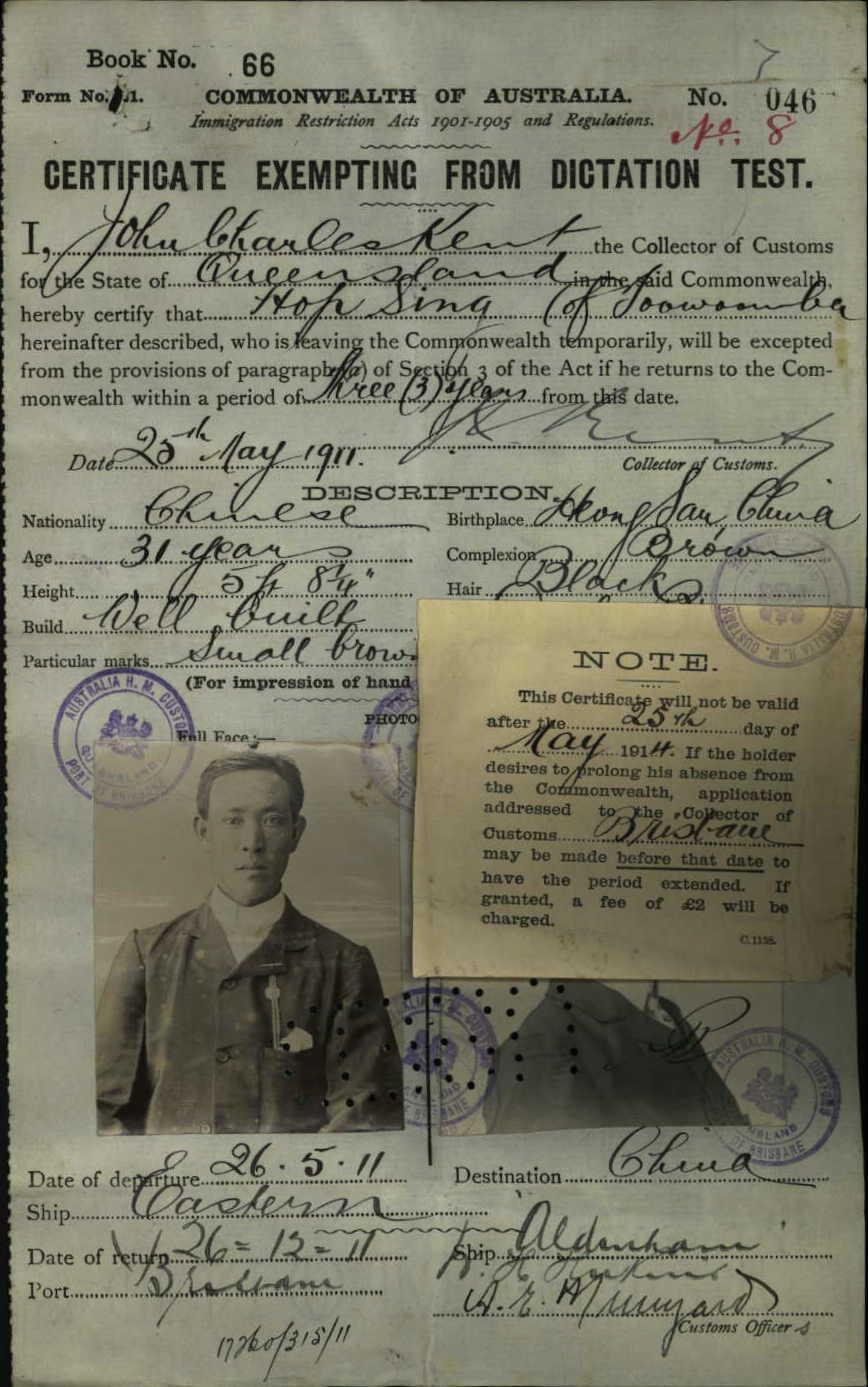 Book No. 66
7
Form No. 21. COMMONWEALTH OF AUSTRALIA. No. 046
Immigration Restriction Acts 1901-1905 and Regulations.
No. 8
CERTIFICATE EXEMPTING FROM DICTATION TEST.
I, John Charles Kent the Collector of Customs
for the State of Queensland in the said Commonwealth,
hereby certify that Hop Sing (of Toowoomba
hereinafter described, who is leaving the Commonwealth temporarily, will be excepted
from the provisions of paragraph (a) of Section 3 of the Act if he returns to the Com-
monwealth within a period of three (3) years from this date.
Date 25th May 1911. J C Kent
Collector of Customs.
DESCRIPTION.
Nationality Chinese Birthplace Heong San, China
Age 31 years Complexion Brown
Height 5 ft 8¼" Hair Black
Build Well built
Particular marks Small brow
(For impression of hand
PHOTO
Full Face:—
NOTE.
This Certificate will not be valid
after the 25th day of
May 1914. If the holder
desires to prolong his absence from
the Commonwealth, application
addressed to the Collector of
Customs Brisbane
may be made before that date to
have the period extended. If
granted, a fee of £2 will be
charged.
C.1158.
AUSTRALIA H. M. CUSTOMS
QUEENSLAND
PORT OF BRISBANE
AUSTRALIA H. M. CUSTOMS
OF BRISBANE
Date of departure 26.5.11 Destination China
Ship Eastern
Date of return 26=12=11 Ship Aldenham
Port Brisbane
A. E.
Customs Officer s
17260/315/11